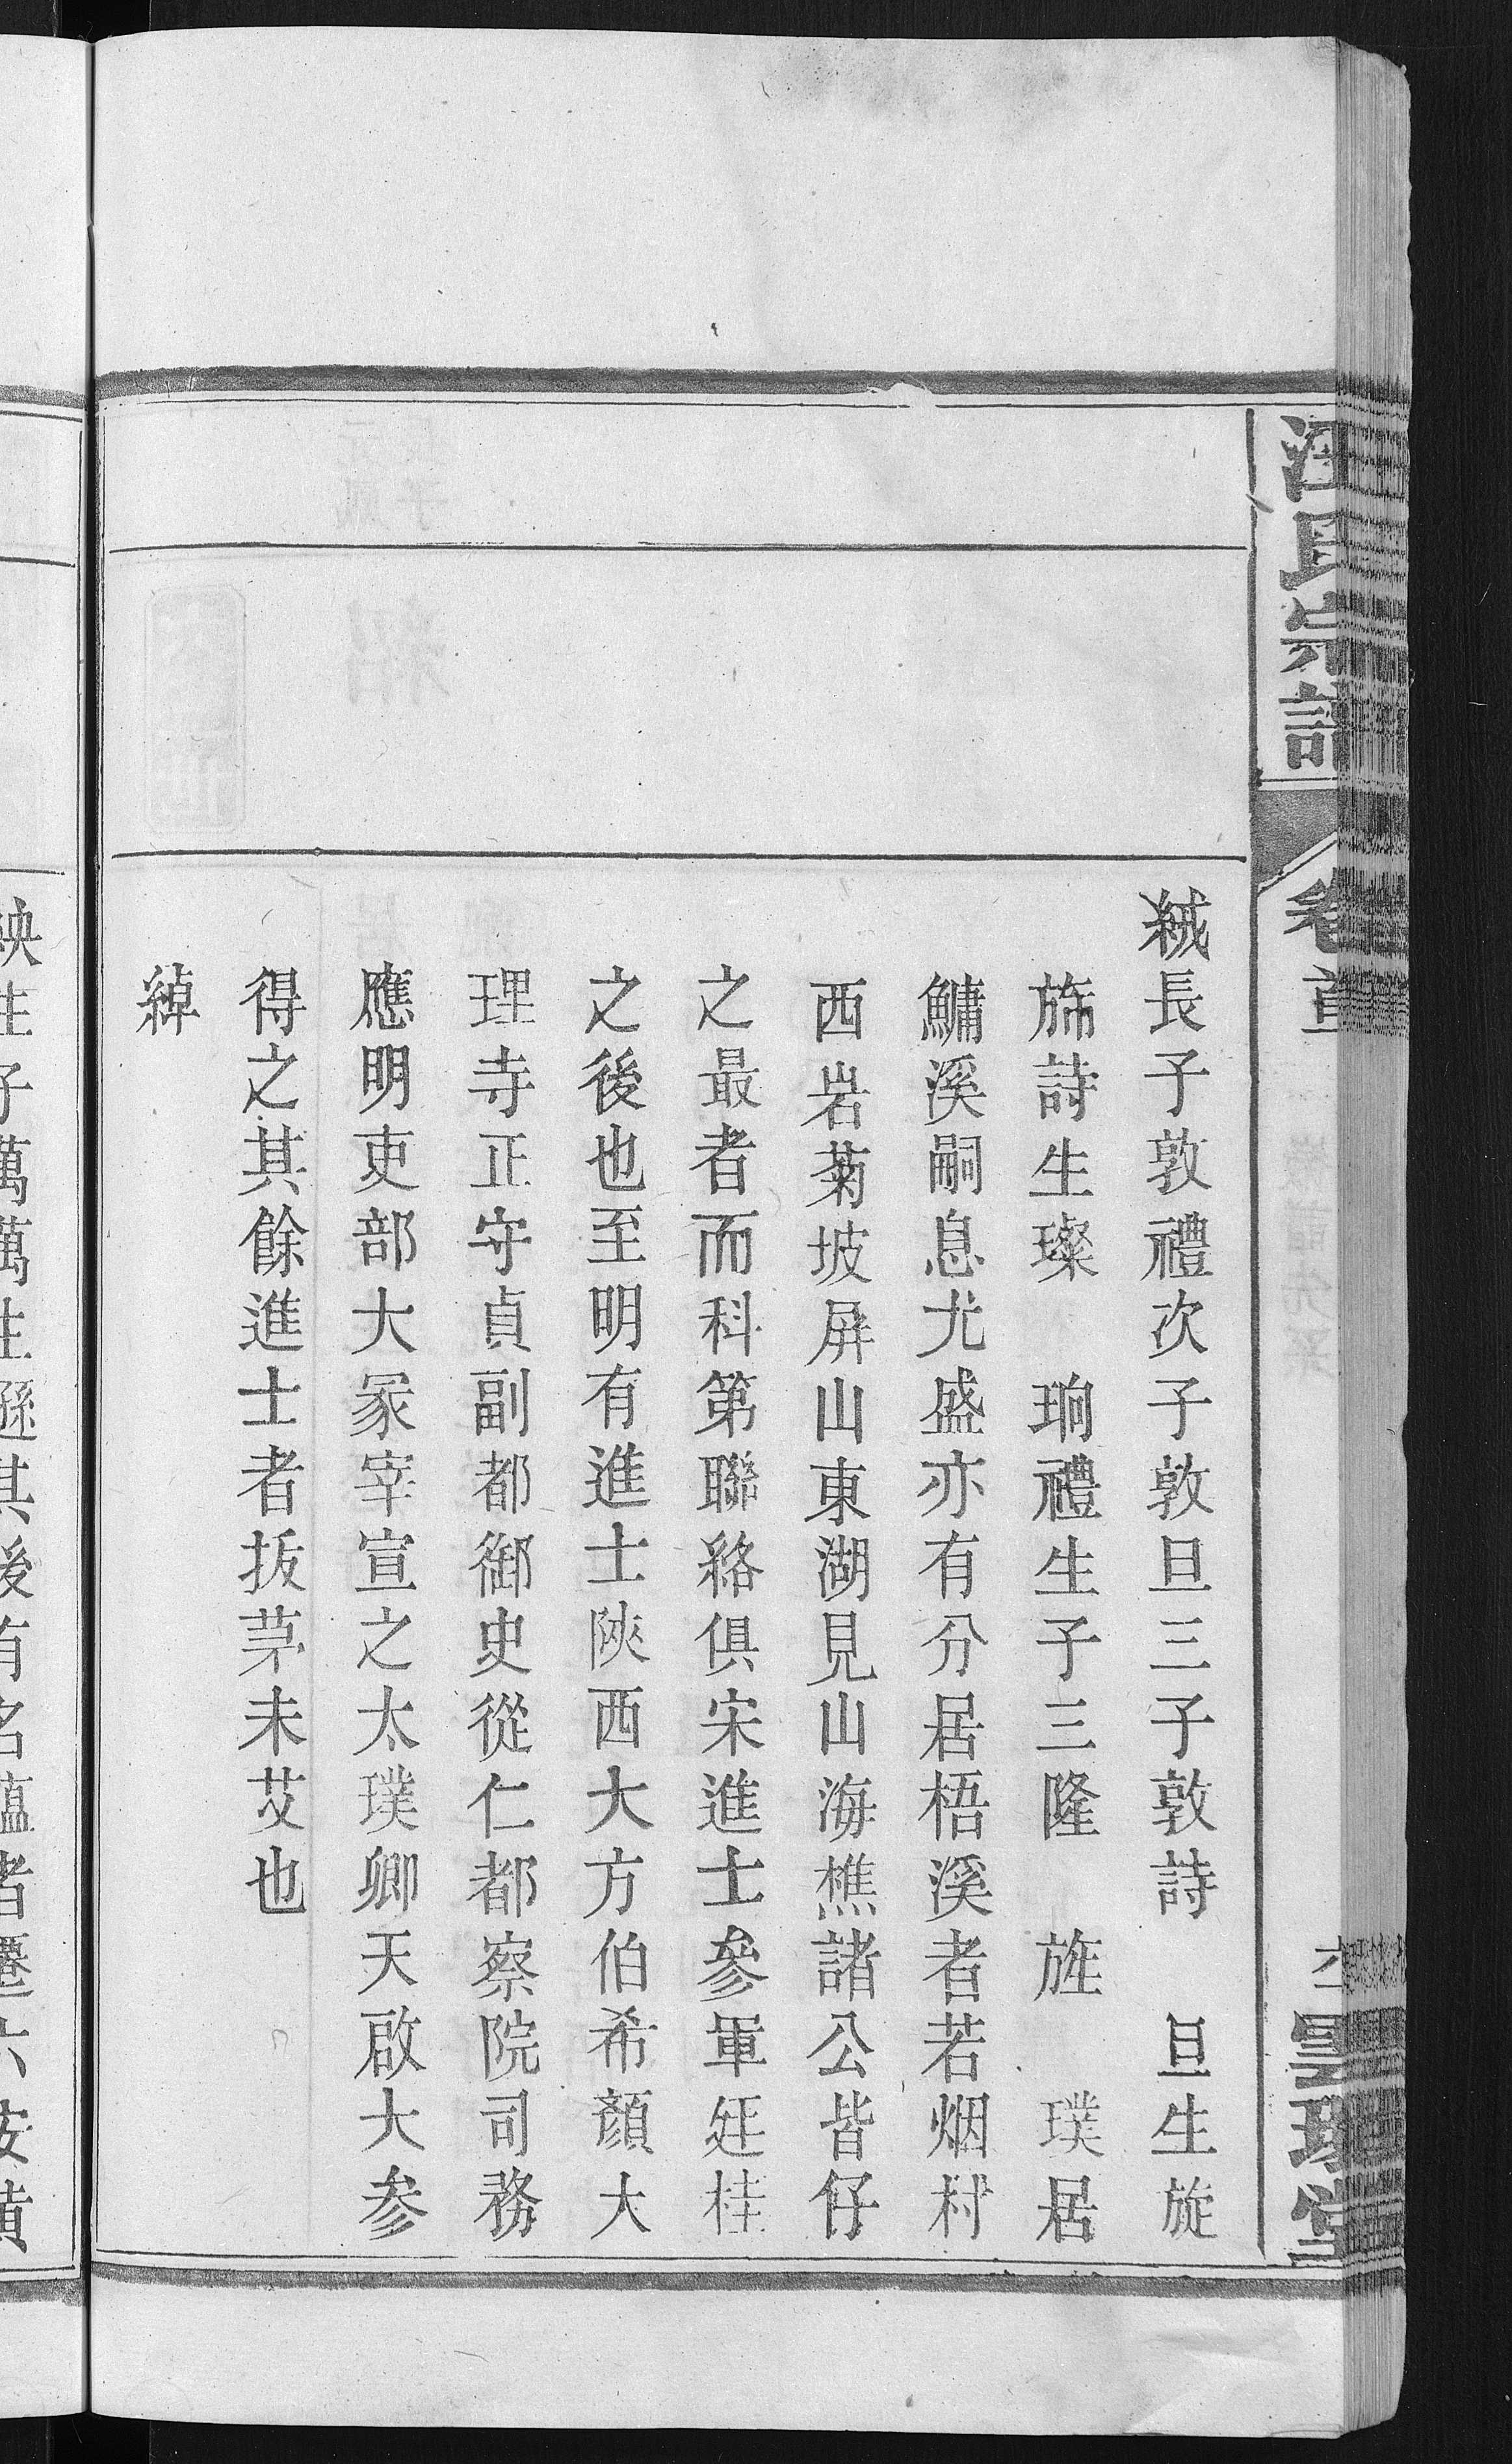 汪氏宗譜
卷首
聖瑞堂
絨長子敦禮次子敦旦三子敦詩　旦生旋
旆詩生璨　珦禮生子三隆　旌　璞居
鱅溪嗣息尤盛亦有分居梧溪者若烟村
西岩菊坡屏山東湖見山海樵諸公皆仔
之最者而科第聯絡俱宋進士參軍廷桂
之後也至明有進士陝西大方伯希顏大
理寺正守貞副都御史從仁都察院司務
應明吏部大冢宰宣之太璞卿天啟大参
得之其餘進士者拔茅未艾也
綽